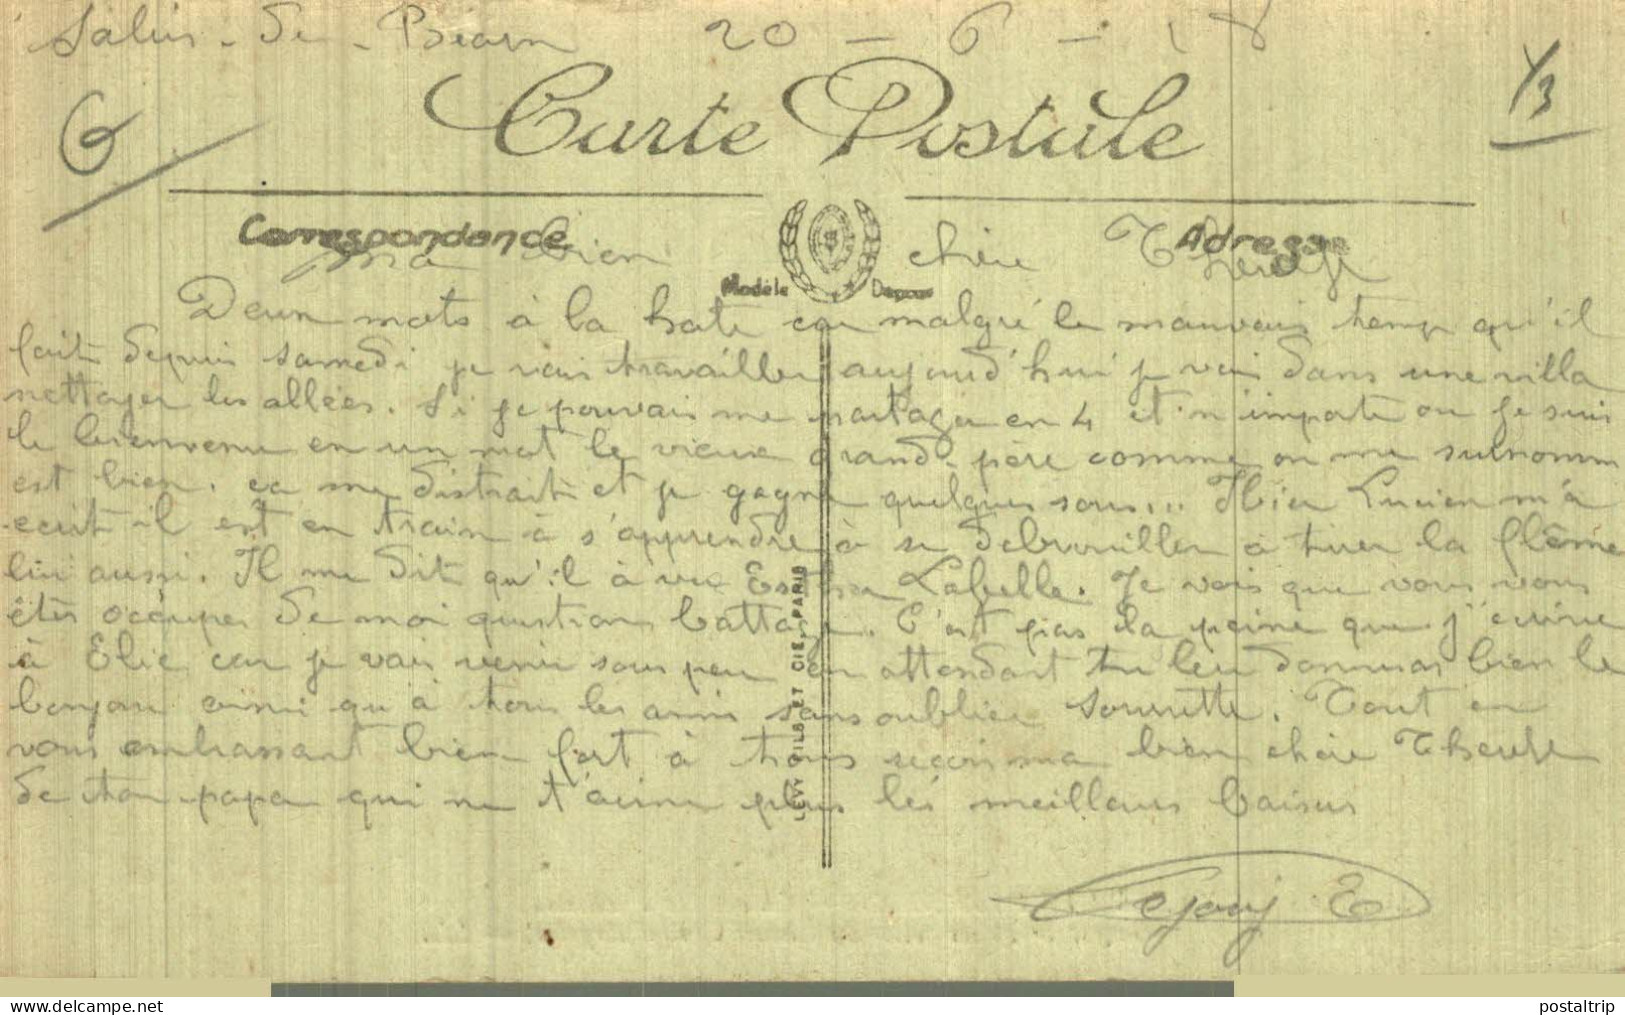 Salies-de-Béarn 20-6-18
6 1/3
Carte Postale
Correspondance Adresse
Ma bien chère Thérèse
Modèle Déposé
Deux mots à la hate car malgré le mauvais temps qu'il
fait depuis samedi je vais travailler aujourd'hui je vais dans une villa
nettoyer les allées. Si je pouvais me partager en 4 et n'importe ou je suis
le bienvenu en un mot le vieux grand-père comme on me surnomm
est bien. ca me distrait et je gagne quelques sous... Hier Lucien m'a
ecrit il est en train à s'apprendre à se debrouiller à tirer la flème
lui aussi. Il me dit qu'il à vu Labelle. Je vois que vous vous
êtes occupés de moi question battage. C'est pas la peine que j'écrive
à Elie car je vais venir sous peu en attendant tu leu donneras bien le
bonjour ainsi qu'à tous les amis sans oublier Tout en
vous embrassant bien fort à tous reçois ma bien chère Thérèse
de ton papa qui ne t'aime plus les meillaurs baisers
LEVY FILS ET CIE, PARIS
postaltrip
www.delcampe.net